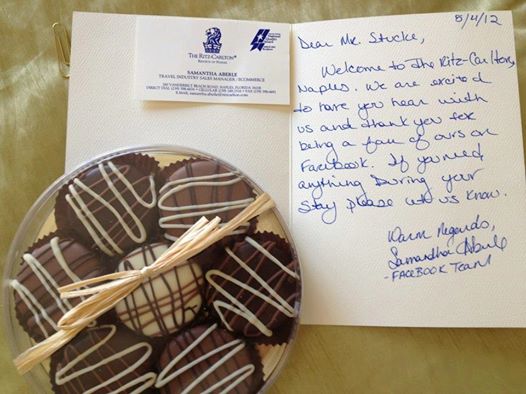 THE RITZ-CARLTON
SAMANTHA ABERLE
TRAVEL INDUSTRY SALES MANAGER - ECOMMERCE
280 VANDERBILT BEACH ROAD, NAPLES, FLORIDA 34108
5/4/12
Dear Mr. Stucke,
Welcome to The Ritz-Carlton,
Naples. We are excited
to have you hear with
us and thank you for
being a fan of ours on
Facebook. If you need
anything During your
Stay please let us know.
Warm Regards,
Samantha Aberle
-FACEBOOK TEAM